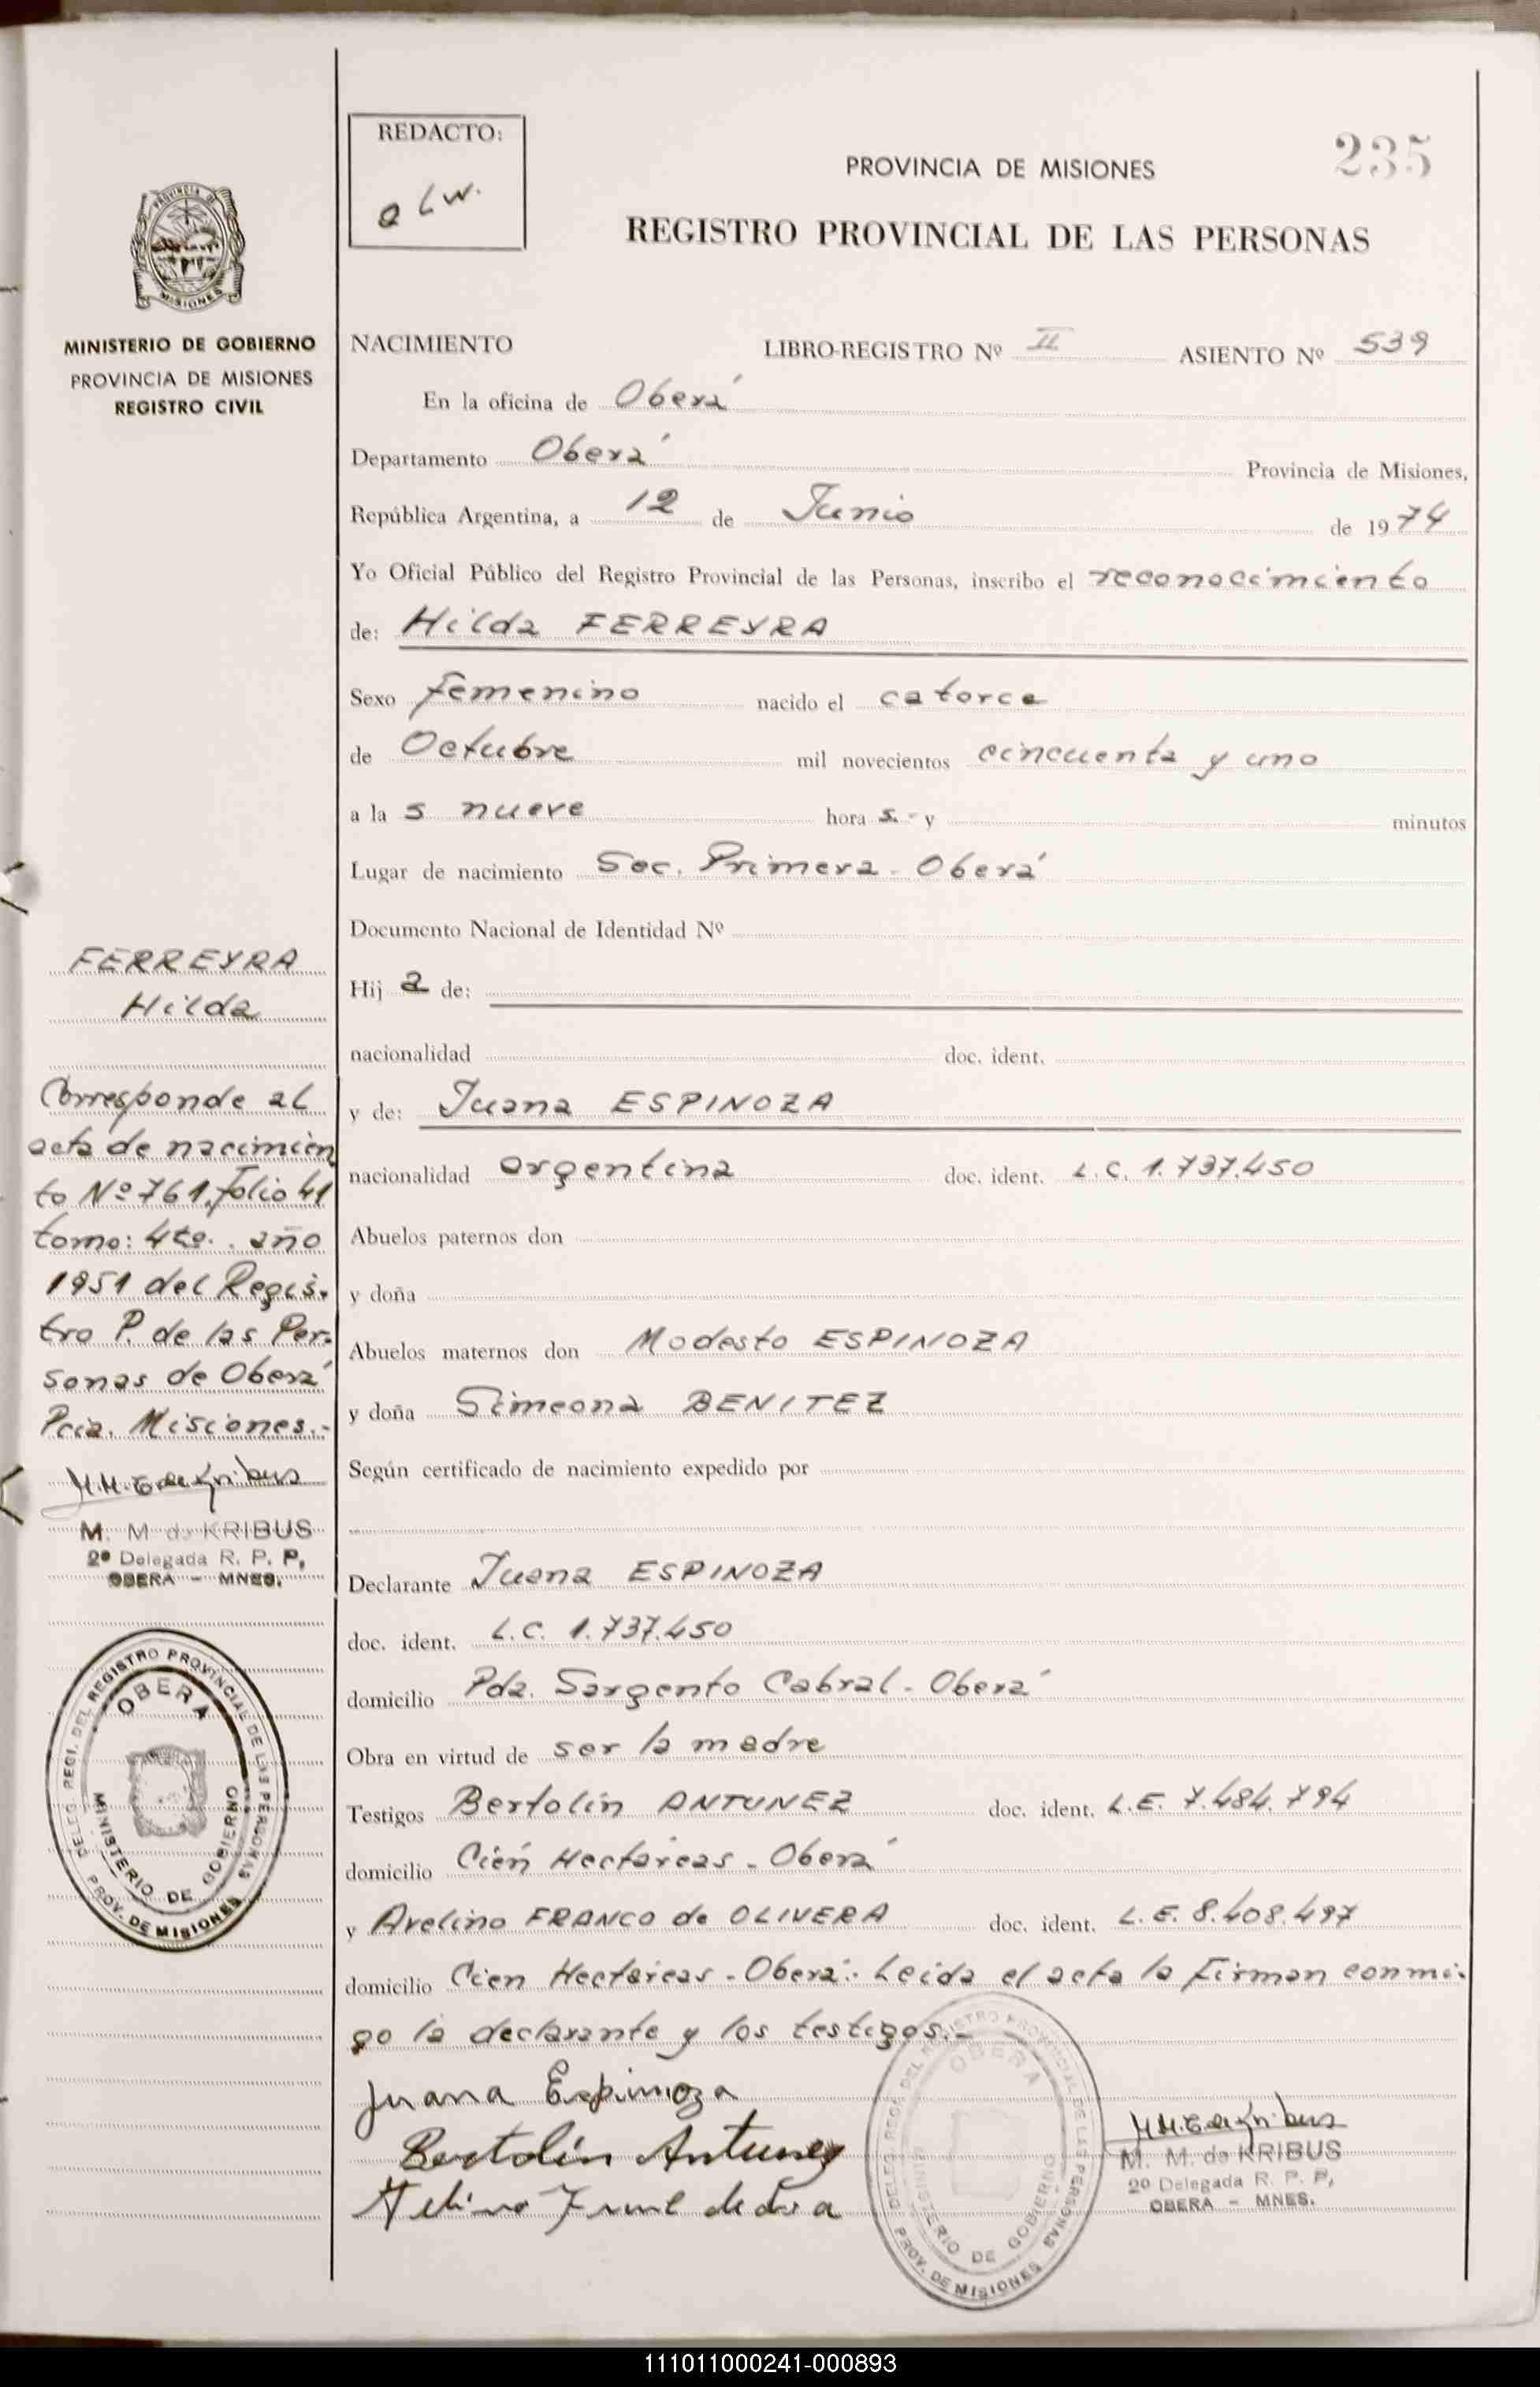 REDACTO:
PROVINCIA DE MISIONES
235
REGISTRO PROVINCIAL DE LAS PERSONAS
PROVINCIA DE
MISIONES
MINISTERIO DE GOBIERNO
PROVINCIA DE MISIONES
REGISTRO CIVIL
NACIMIENTO LIBRO-REGISTRO Nº II ASIENTO Nº 539
En la oficina de Oberá
Departamento Oberá Provincia de Misiones,
República Argentina, a 12 de Junio de 1974
Yo Oficial Público del Registro Provincial de las Personas, inscribo el reconocimiento
de: Hilda FERREYRA
Sexo femenino nacido el catorce
de Octubre mil novecientos cincuenta y uno
a la s nueve hora s.- y minutos
Lugar de nacimiento Sec. Primera - Oberá
Documento Nacional de Identidad Nº
Hij a de:
nacionalidad doc. ident.
y de: Juana ESPINOZA
nacionalidad argentina doc. ident. L.C. 1.737.450
Abuelos paternos don
y doña
Abuelos maternos don Modesto ESPINOZA
y doña Simeona BENITEZ
Según certificado de nacimiento expedido por
Declarante Juana ESPINOZA
doc. ident. L.C. 1.737.450
domicilio Pda. Sargento Cabral - Oberá
Obra en virtud de ser la madre
Testigos Bertolin ANTUNEZ doc. ident. L.E. 7.484.794
domicilio Cién Hectáreas - Oberá
y Avelino FRANCO de OLIVERA doc. ident. L.E. 8.408.497
domicilio Cien Hectáreas - Oberá.- Leida el acta la firman conmi-
go la declarante y los testigos.-
Juana Espinoza
Bertolin Antunez
M. M. de KRIBUS
2º Delegada R. P. P,
OBERA - MNES.
DELEG. REGI. DEL REGISTRO PROVINCIAL DE LAS PERSONAS
OBERA
MINISTERIO DE GOBIERNO
PROV. DE MISIONES
FERREYRA
Hilda
Corresponde al
acta de nacimien
to Nº 761, folio 41
tomo: 4to. . año
1951 del Regis-
tro P. de las Per-
sonas de Oberá
Pcia. Misiones.-
M. M de KRIBUS
2º Delegada R. P. P,
OBERA - MNES.
DELEG. REGI. DEL REGISTRO PROVINCIAL DE LAS PERSONAS
OBERA
MINISTERIO DE GOBIERNO
PROV. DE MISIONES
111011000241-000893